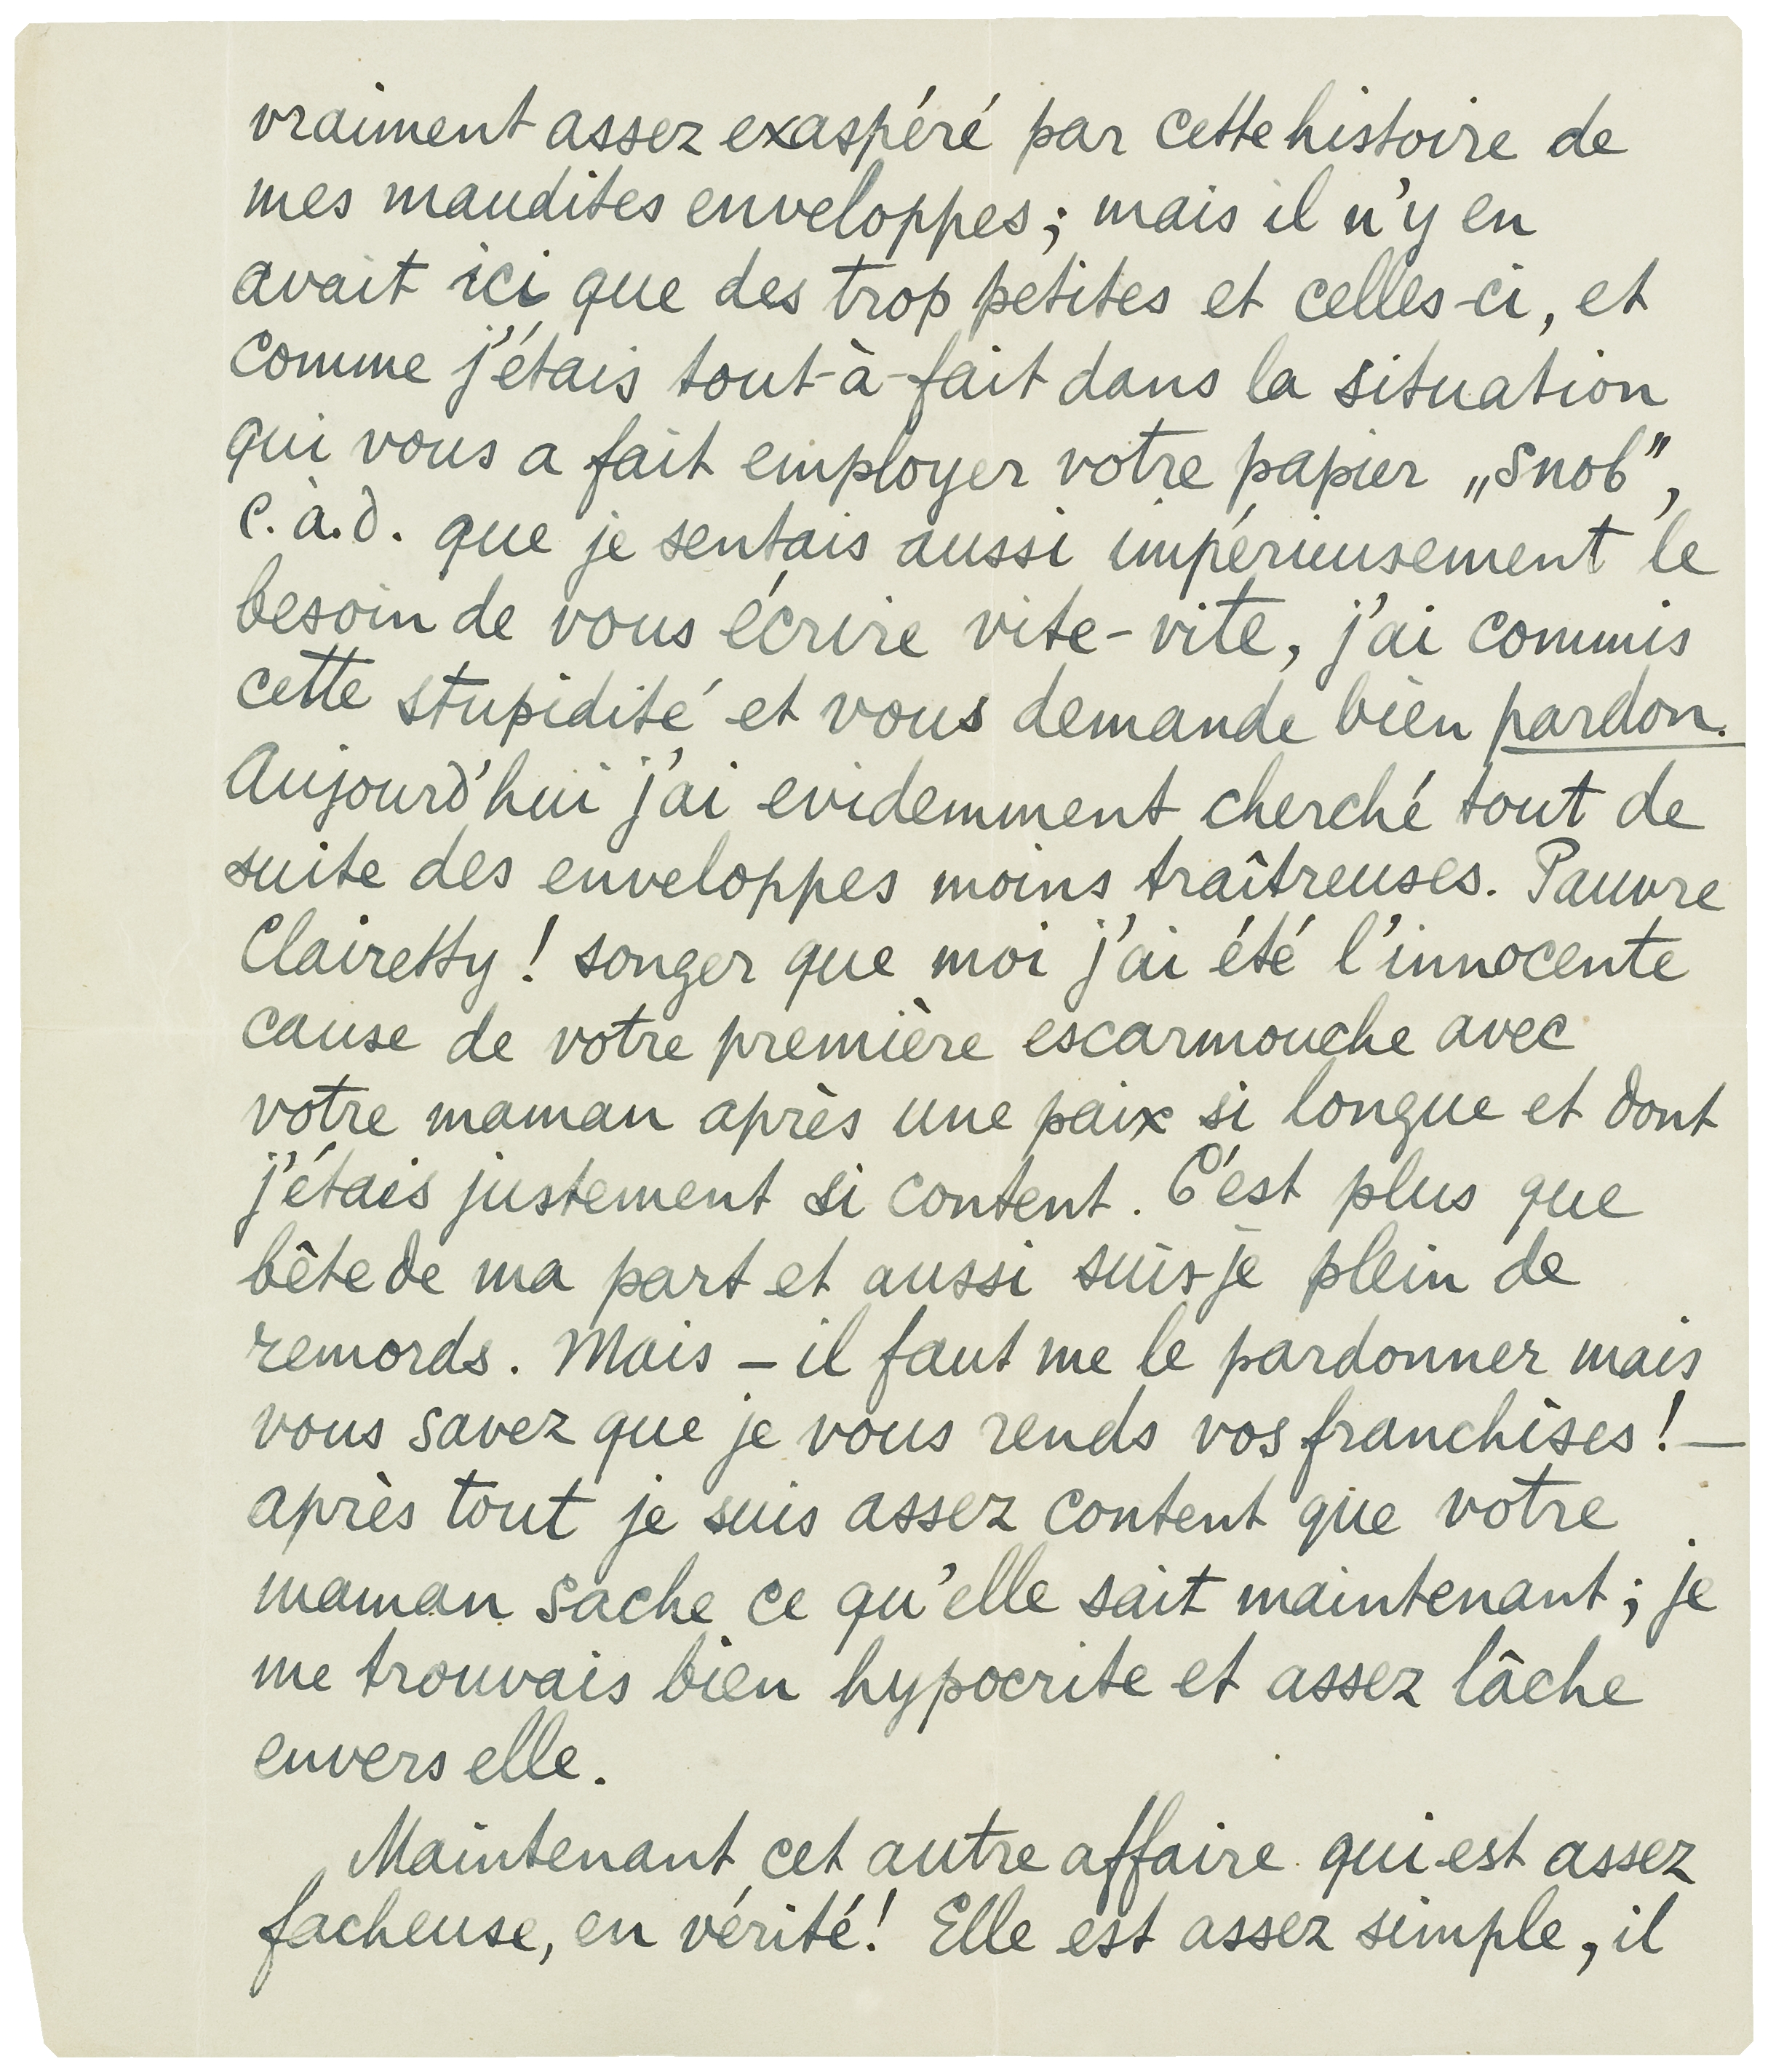 vraiment assez exaspéré par cette histoire de
mes maudites enveloppes; mais il n'y en
avait ici que des trop petites et celles-ci, et
comme j'étais tout-à-fait dans la situation
qui vous a fait employer votre papier „snob",
c.à.d. que je sentais aussi impérieusement le
besoin de vous écrire vite-vite, j'ai commis
cette stupidité et vous demande bien pardon.
Aujourd'hui j'ai evidemment cherché tout de
suite des enveloppes moins traîtreuses. Pauvre
Clairetty! songer que moi j'ai été l'innocente
cause de votre première escarmouche avec
votre maman après une paix si longue et dont
j'étais justement si content. C'est plus que
bête de ma part et aussi suis-je plein de
remords. Mais – il faut me le pardonner mais
vous savez que je vous rends vos franchises! –
après tout je suis assez content que votre
maman sache ce qu'elle sait maintenant; je
me trouvais bien hypocrite et assez lâche
envers elle.
Maintenant cet autre affaire qui est assez
facheuse, en vérité! Elle est assez simple, il